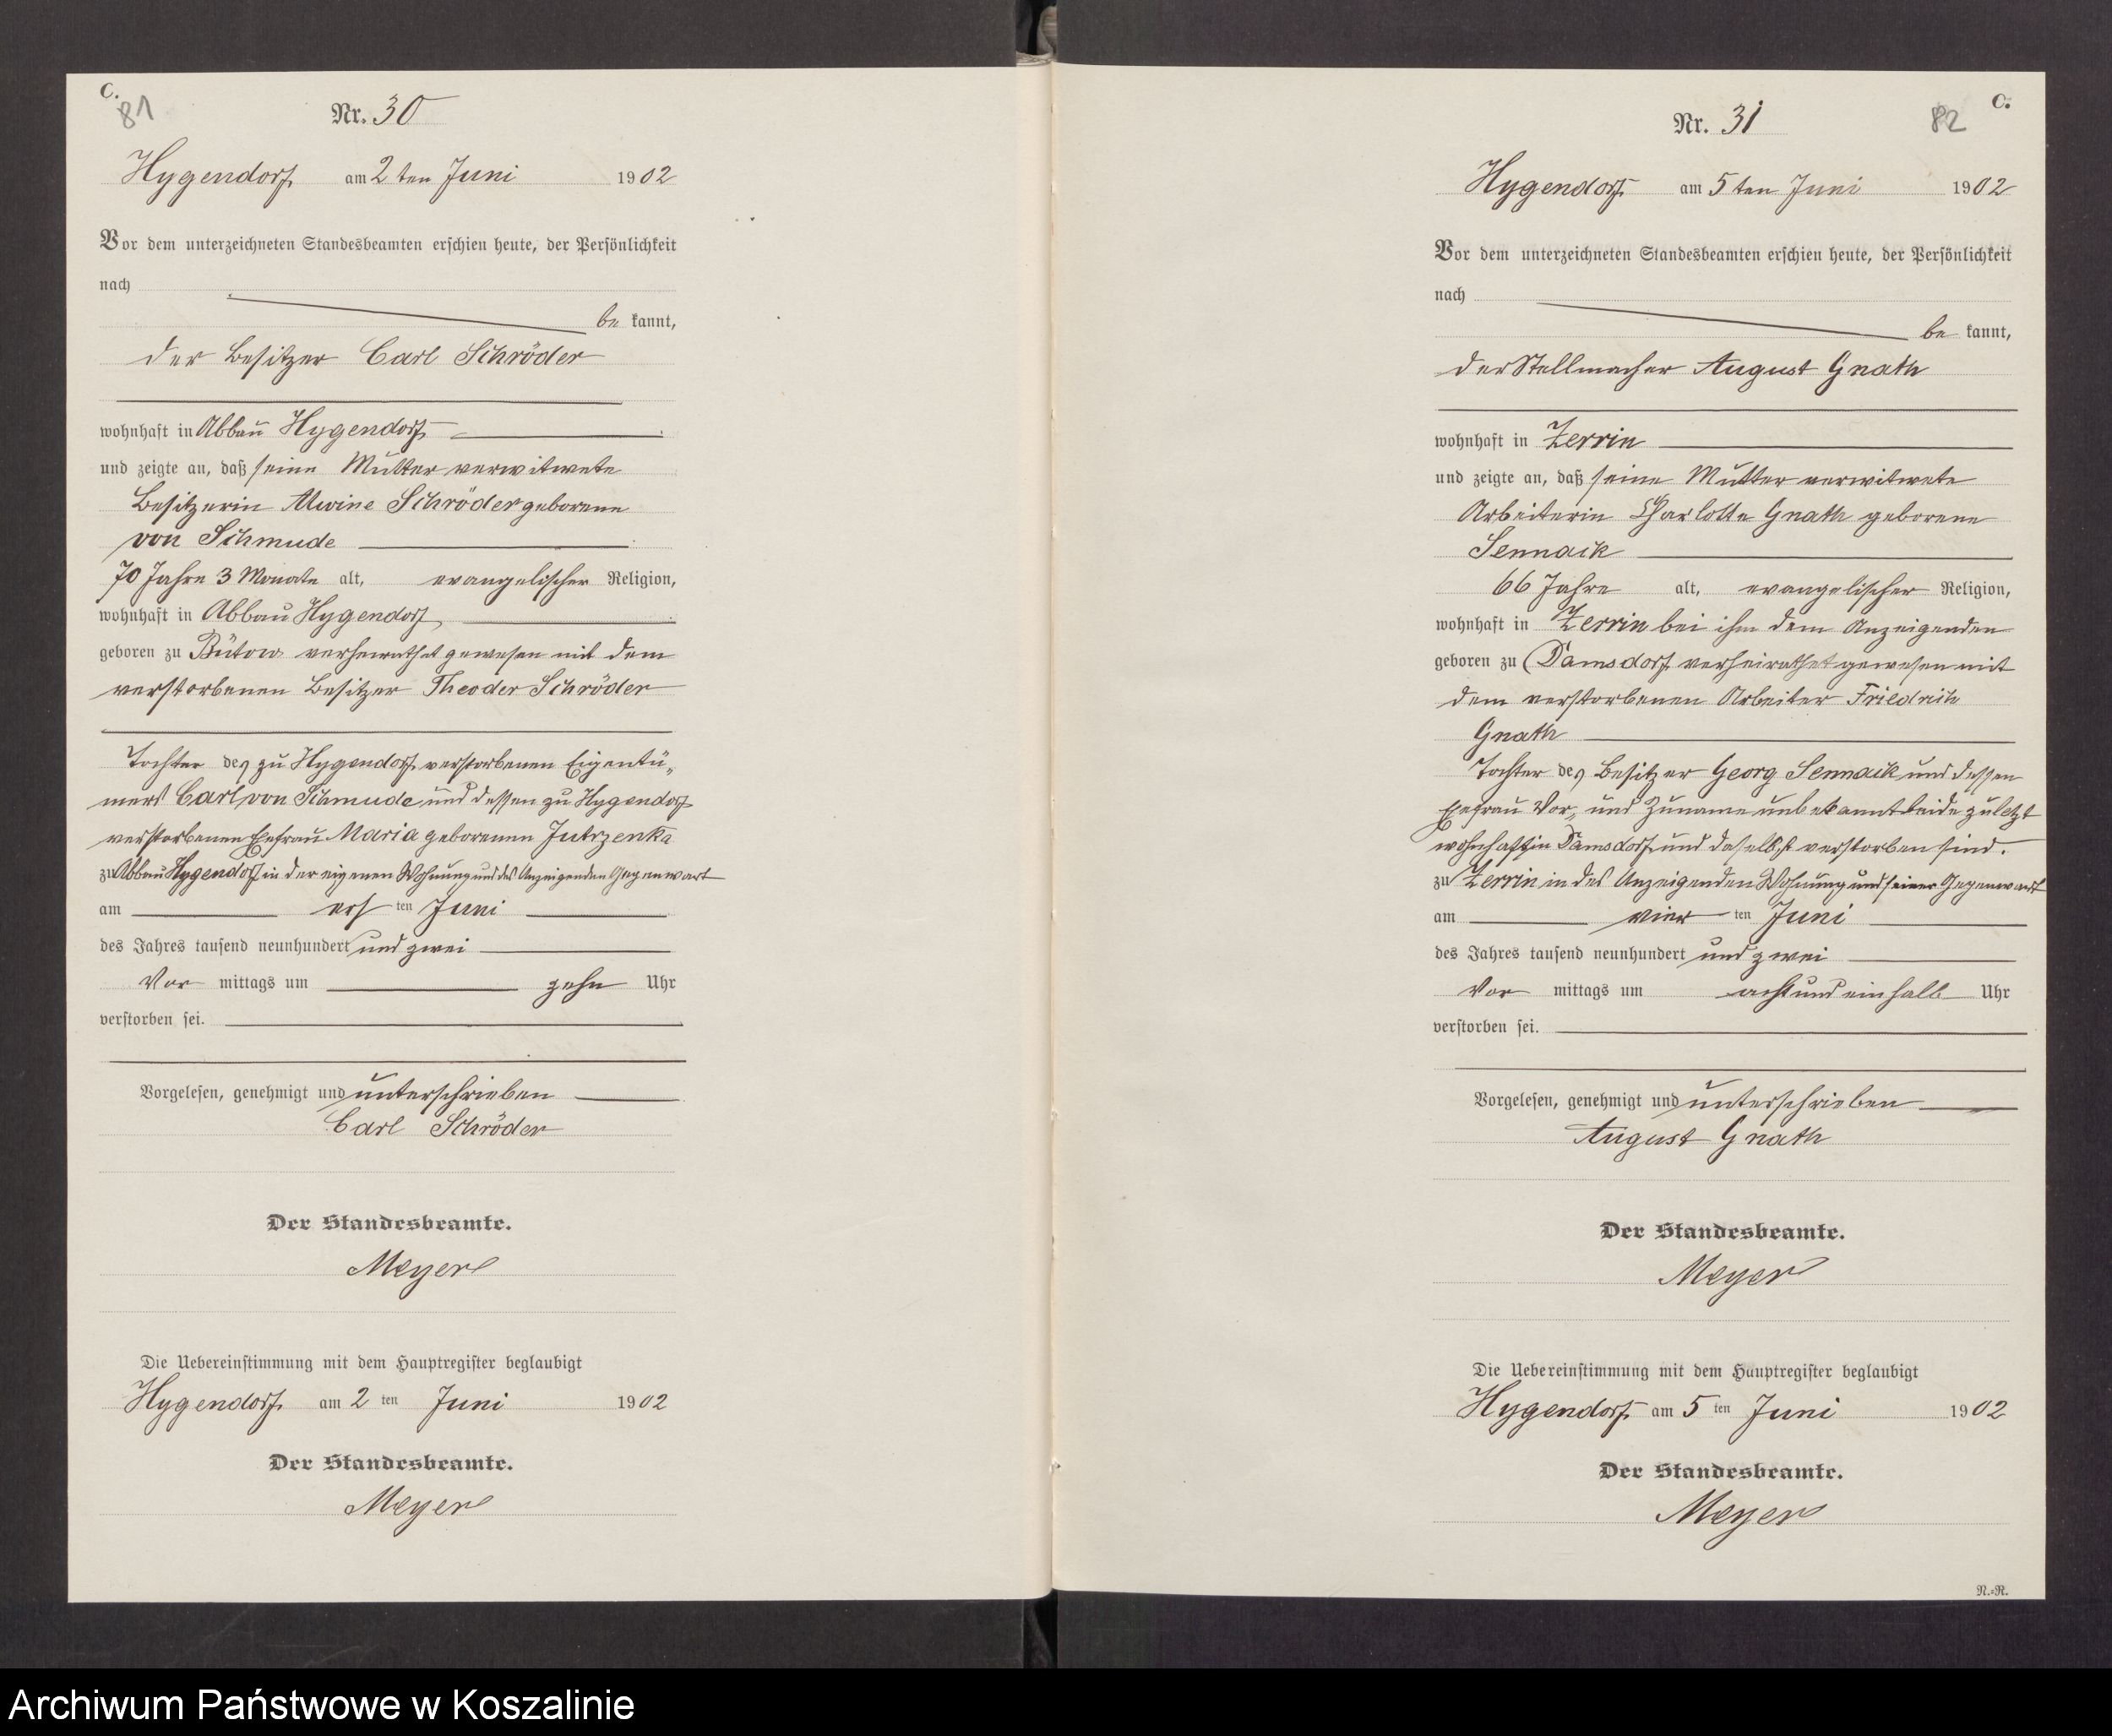 C.
81
Nr. 30
Hygendorf am 2 ten Juni 1902
Vor dem unterzeichneten Standesbeamten erschien heute, der Persönlichkeit
nach
be kannt,
der Besitzer Carl Schröder
wohnhaft in Abbau Hygendorf
und zeigte an, daß seine Mutter verwitwete
Besitzerin Alwine Schröder geborene
von Schmude
70 Jahre 3 Monate alt, evangelischer Religion,
wohnhaft in Abbau Hygendorf
geboren zu Bütow verheirathet gewesen mit dem
verstorbenen Besitzer Theoder Schröder
Tochter des zu Hygendorf verstorbenen Eigentü-
mers Carl von Schmude und dessen zu Hygendorf
verstorbenen Ehefrau Maria geborenen Jutrzenka
zu Abbau Hygendorf in der eigenen Wohnung und des Anzeigenden Gegenwart
am ers ten Juni
des Jahres tausend neunhundert und zwei
Vor mittags um zehn Uhr
verstorben sei.
Vorgelesen, genehmigt und unterschrieben
Carl Schröder
Der Standesbeamte.
Meyer
Die Uebereinstimmung mit dem Hauptregister beglaubigt
Hygendorf am 2 ten Juni 1902
Der Standesbeamte.
Meyer
C.
82
Nr. 31
Hygendorf am 5 ten Juni 1902
Vor dem unterzeichneten Standesbeamten erschien heute, der Persönlichkeit
nach
be kannt,
der Stellmacher August Gnath
wohnhaft in Zerrin
und zeigte an, daß seine Mutter verwitwete
Arbeiterin Charlotte Gnath geborene
Sennaik
66 Jahre alt, evangelischer Religion,
wohnhaft in Zerrin bei ihm dem Anzeigenden
geboren zu Damsdorf verheirathet gewesen mit
dem verstorbenen Arbeiter Friedrich
Gnath
Tochter des Besitzer Georg Sennaik und dessen
Ehefrau Vor- und Zuname unbekannt beide zuletzt
wohnhaft in Damsdorf und daselbst verstorben sind.
zu Zerrin in des Anzeigenden Wohnung und seiner Gegenwart
am vier ten Juni
des Jahres tausend neunhundert und zwei
Vor mittags um acht und ein halb Uhr
verstorben sei.
Vorgelesen, genehmigt und unterschrieben
August Gnath
Der Standesbeamte.
Meyer
Die Uebereinstimmung mit dem Hauptregister beglaubigt
Hygendorf am 5 ten Juni 1902
Der Standesbeamte.
Meyer
N.=R.
Archiwum Państwowe w Koszalinie